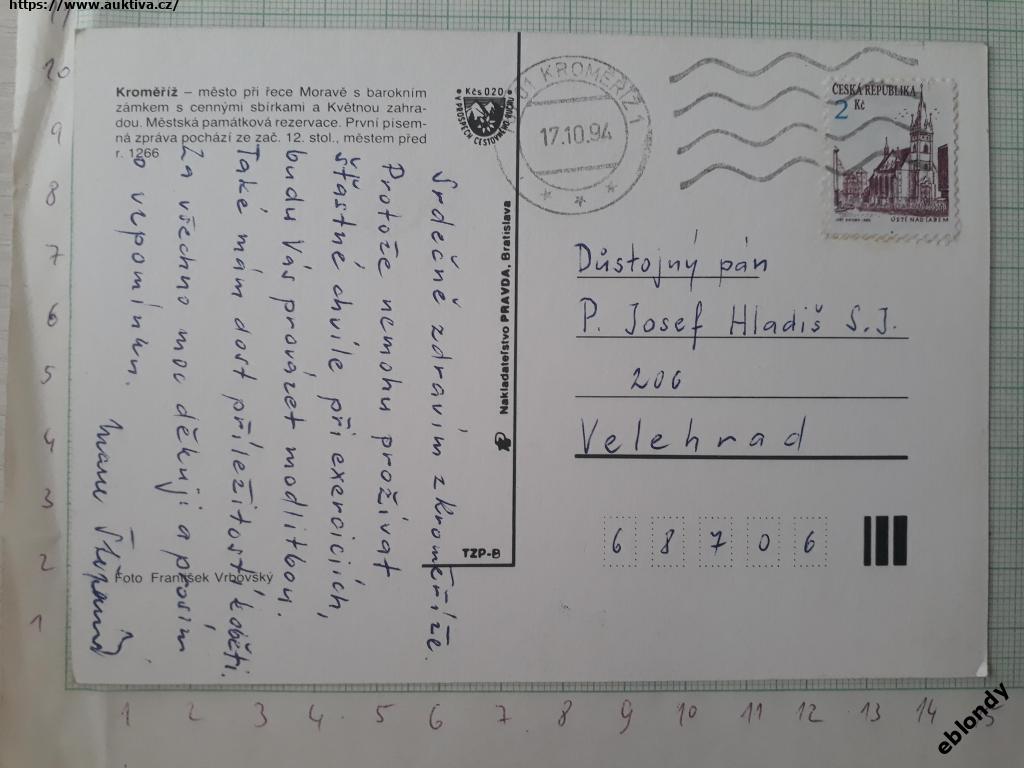 https://www.auktiva.cz/
Kroměříž – město při řece Moravě s barokním
zámkem s cennými sbírkami a Květnou zahra-
dou. Městská památková rezervace. První písem-
ná zpráva pochází ze zač. 12. stol., městem před
r. 1266
Kčs 020
V PROSPĚCH CESTOVNÍHO RUCHU
01 KROMĚŘÍŽ 1
17.10.94
ČESKÁ REPUBLIKA
2
Kč
ÚSTÍ NAD LABEM
Srdečně zdravím z Kroměříže.
Protože nemohu prožívat
šťastné chvíle při exerciciích,
budu Vás provázet modlitbou.
Také mám dost příležitostí k oběti.
Za všechno moc děkuji a prosím
o vzpomínku.
Foto František Vrbovský
Nakladateľstvo PRAVDA, Bratislava
TZP-8
Důstojný pán
P. Josef Hladiš S.J.
206
Velehrad
6 8 7 0 6
10
9
8
7
6
5
4
3
2
1
1 2 3 4 5 6 7 8 9 10 11 12 13 14 15
eblondy